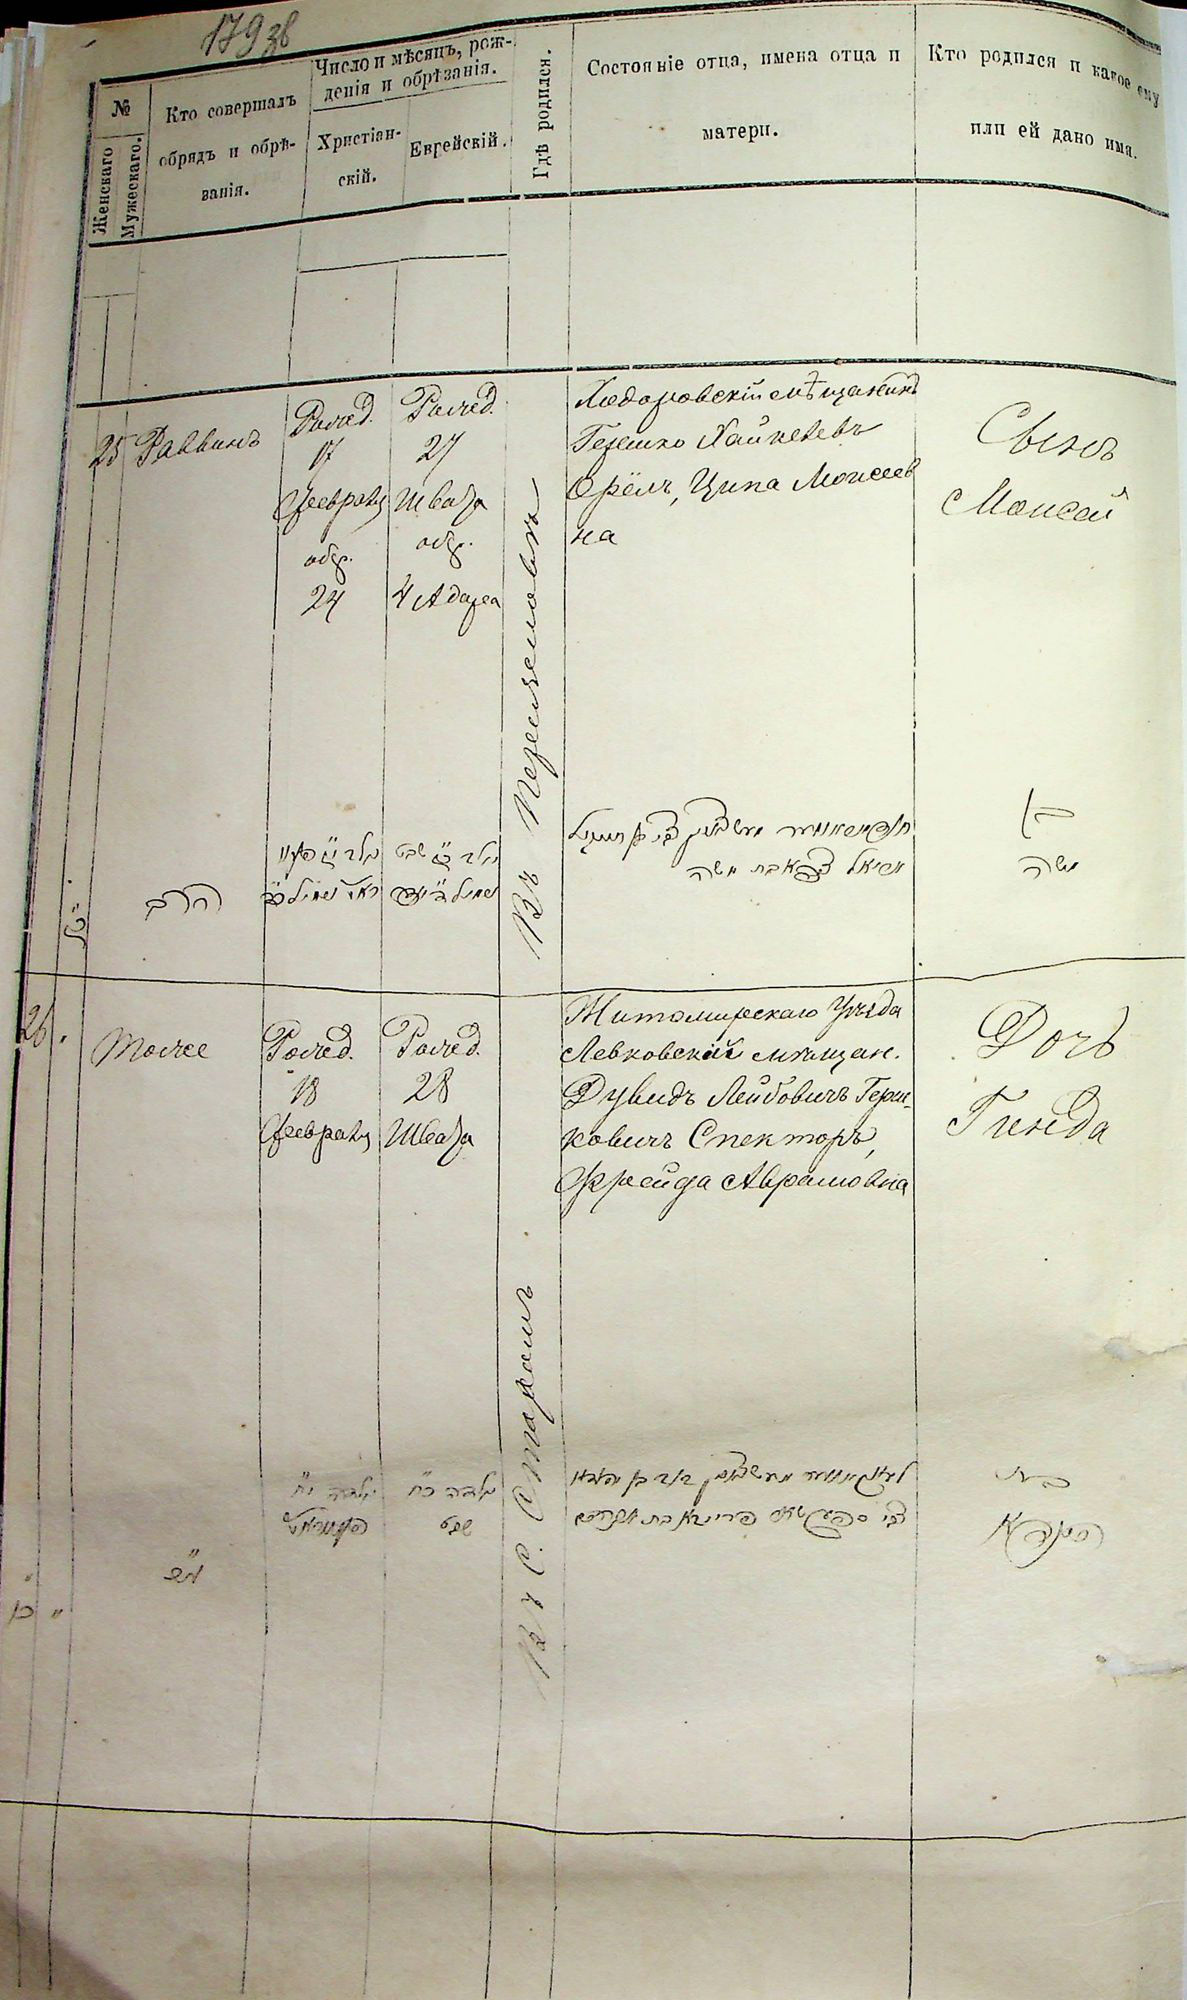 179 зв
№
Женскаго
Мужескаго.
Кто совершалъ
обрядъ и обрѣ-
занія.
Число и мѣсяцъ, рож-
денія и обрѣзанія.
Христіан-
скій.
Еврейскій.
Гдѣ родился.
Состояніе отца, имена отца и
матери.
Кто родился и какое ему
или ей дано имя.
25
Раввинъ
Рожд.
17
Февраля
обр.
24
Рожд.
27
Швата
обр.
4 Адара
Въ
Ходоровскій мѣщанинъ
Гершко Хайкелевъ
Орёлъ, Ципа Моисеев
на
Сынъ
Моисей
הרב
שבט
בת משה
בן
משה
26.
Тоже
Рожд.
18
Февраля
Рожд.
28
Швата
Въ С.
Житомирскаго Уѣзда
Левковскій мѣщан.
Дувидъ Лейбовичъ Герш-
ковичъ Спекторъ,
Фрейда Аврамовна
Дочь
Гинда
ילדה יח
ילדה כח
שבט
בת
כו